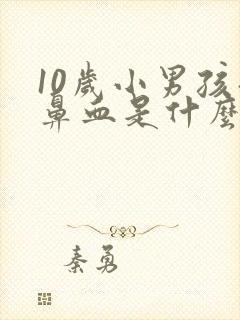 10歲小男孩
鼻血是什麼
秦勇